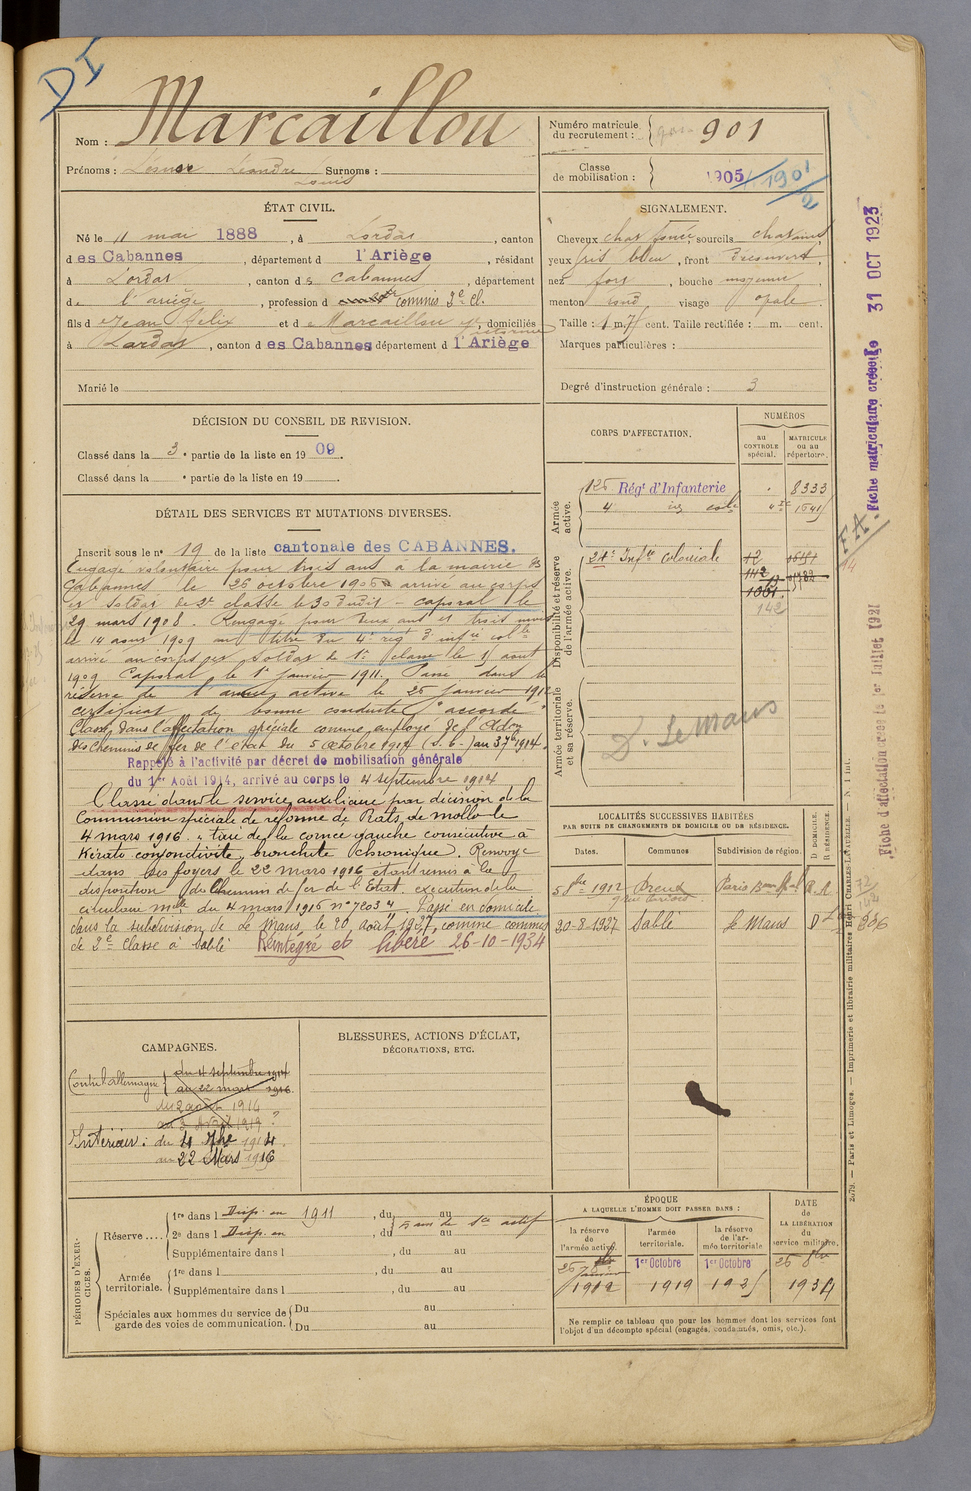 DI
Nom : Marcaillou
Prénoms : Léandre Surnoms :
Louis
Numéro matricule du recrutement : 901
Classe de mobilisation : 1905
1901
2
ÉTAT CIVIL.
Né le 11 mai 1888, à Lordat, canton
des Cabannes, département d l'Ariège, résidant
à Lordat, canton de Cabannes, département
de l'ariège, profession de commis 3e Cl.
fils de Jean Félix et de Marcaillou, domiciliés
à Lordat, canton des Cabannes département d l'Ariège
Marié le
SIGNALEMENT.
Cheveux chat foncé, sourcils chatains
yeux gris bleu, front découvert,
nez fort, bouche moyenne
menton rond visage ovale
Taille : 1 m. cent. Taille rectifiée : m. cent.
Marques particulières :
Degré d'instruction générale : 3
DÉCISION DU CONSEIL DE REVISION.
Classé dans la 3e partie de la liste en 1909.
Classé dans la e partie de la liste en 19
DÉTAIL DES SERVICES ET MUTATIONS DIVERSES.
Inscrit sous le n° 19 de la liste cantonale des CABANNES.
Engagé volontaire pour trois ans à la mairie des
Cabannes le 26 octobre 1906 arrivé au corps
et soldat de 2e classe le 30 dudit - caporal le
29 mars 1908. Rengagé pour deux ans et trois mois
le 14 aout 1909 au titre du 4e regt d'infie colle
arrivé au corps et soldat de 1e classe le 15 aout
1909 Caporal le 1er janvier 1911. Passé dans la
réserve de l'armée active le 26 janvier 1912
certificat de bonne conduite "accordé"
Classé dans l'affectation spéciale comme employé de l'Adon
des Chemins de fer de l'état du 5 octobre 1914 (S.6.) au 3 7bre 1914.
Rappelé à l'activité par décret de mobilisation générale
du 1er Août 1914, arrivé au corps le 4 septembre 1914
Classé dans le service auxiliaire par décision de la
Commission spéciale de réforme de Prats de mollo le
4 mars 1916 "taie de la cornée gauche consécutive à
Kérato conjonctivite, bronchite chronique. Renvoyé
dans ses foyers le 22 mars 1916 étant remis à la
disposition du Chemin de fer de l'Etat. exécution de la
circulaire mlle du 4 mars 1916 n° 7203 Passé en domicile
dans la subdivision de Le Mans, le 20 août 1927, comme commis
de 2e Classe à Sablé Réintégré et libéré 26-10-1934
CORPS D'AFFECTATION.
NUMÉROS
au CONTRÔLE spécial.
MATRICULE ou au répertoire.
Armée active.
126 Régt d'Infanterie 8333
4 colle 1541
Disponibilité et réserve de l'armée active.
24e Infie Coloniale 12
112
1061
142
Armée territoriale et sa réserve.
D. Le Mans
LOCALITÉS SUCCESSIVES HABITÉES
PAR SUITE DE CHANGEMENTS DE DOMICILE OU DE RÉSIDENCE.
Dates. Communes Subdivision de région. D DOMICILE. R RÉSIDENCE.
5 8bre 1912 Dreux Paris
20-8-1927 Sablé Le Mans D
CAMPAGNES.
Contre l'allemagne du 4 septembre 1914
au 22 mars 1916
du 2 août 1914
au 3 Avril 1919 ?
Intérieur : du 4 7bre 1914.
au 22 Mars 1916
BLESSURES, ACTIONS D'ÉCLAT,
DÉCORATIONS, ETC.
PÉRIODES D'EXERCICES.
Réserve.... 1re dans l Disp. en 1911, du au
2e dans l Disp. en, du au
Supplémentaire dans l, du au
Armée territoriale. 1re dans l, du au
Supplémentaire dans l, du au
Spéciales aux hommes du service de garde des voies de communication. Du au
Du au
ÉPOQUE
A LAQUELLE L'HOMME DOIT PASSER DANS :
la réserve de l'armée active.
l'armée territoriale.
la réserve de l'armée territoriale
DATE de LA LIBÉRATION du service militaire.
26 janvier 1912
1er Octobre 1919
1er Octobre 1925
26 8bre 1934
Ne remplir ce tableau que pour les hommes dont les services font
l'objet d'un décompte spécial (engagés, condamnés, omis, etc.).
Fiche matriculaire créée le 31 OCT 1923
F.A.
Fiche d'affectation créée le 1er Juillet 1921
2579. — Paris et Limoges. — Imprimerie et librairie militaires Henri CHARLES-LAVAUZELLE. — N. 1 int.